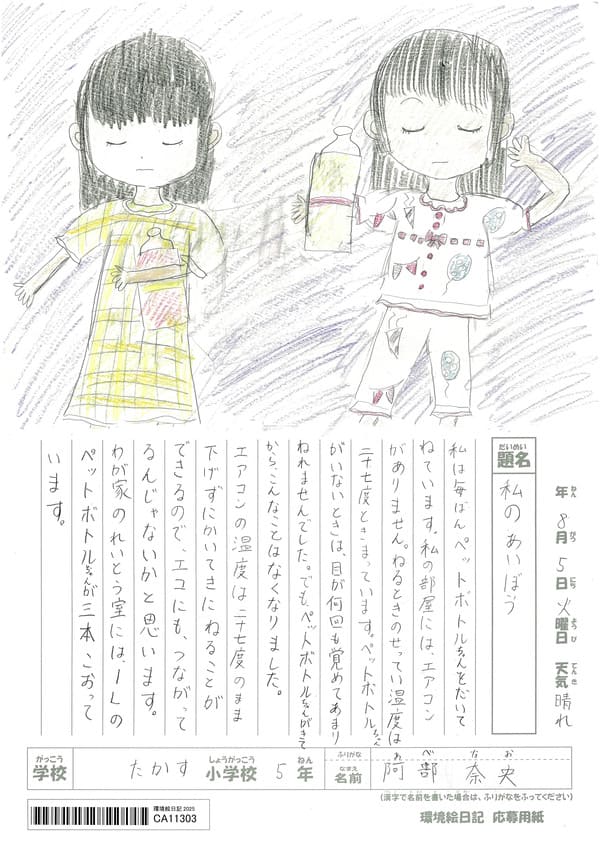 年 8月 5日 火曜日 天気 晴れ
ねん がつ にち ようび てんき
だいめい
題名 私のあいぼう
私は毎ばんペットボトルちゃんをだいて
ねています。私の部屋には、エアコン
がありません。ねるときのせってい温度は
二十七度ときまっています。ペットボトルちゃん
がいないときは、目が何回も覚めてあまり
ねれませんでした。でも、ペットボトルちゃんがきて
から、こんなことはなくなりました。
エアコンの温度は二十七度のまま
下げずにかいてきにねることが
できるので、エコにも、つながって
るんじゃないかと思います。
わが家のれいとう室には、1Lの
ペットボトルちゃんが三本、こおって
います。
がっこう しょうがっこう ねん ふりがな あ べ な お
学校 たかす 小学校 5 年 なまえ 名前 阿部 奈央
(漢字で名前を書いた場合は、ふりがなをふってください)
環境絵日記 2025
CA11303
環境絵日記 応募用紙